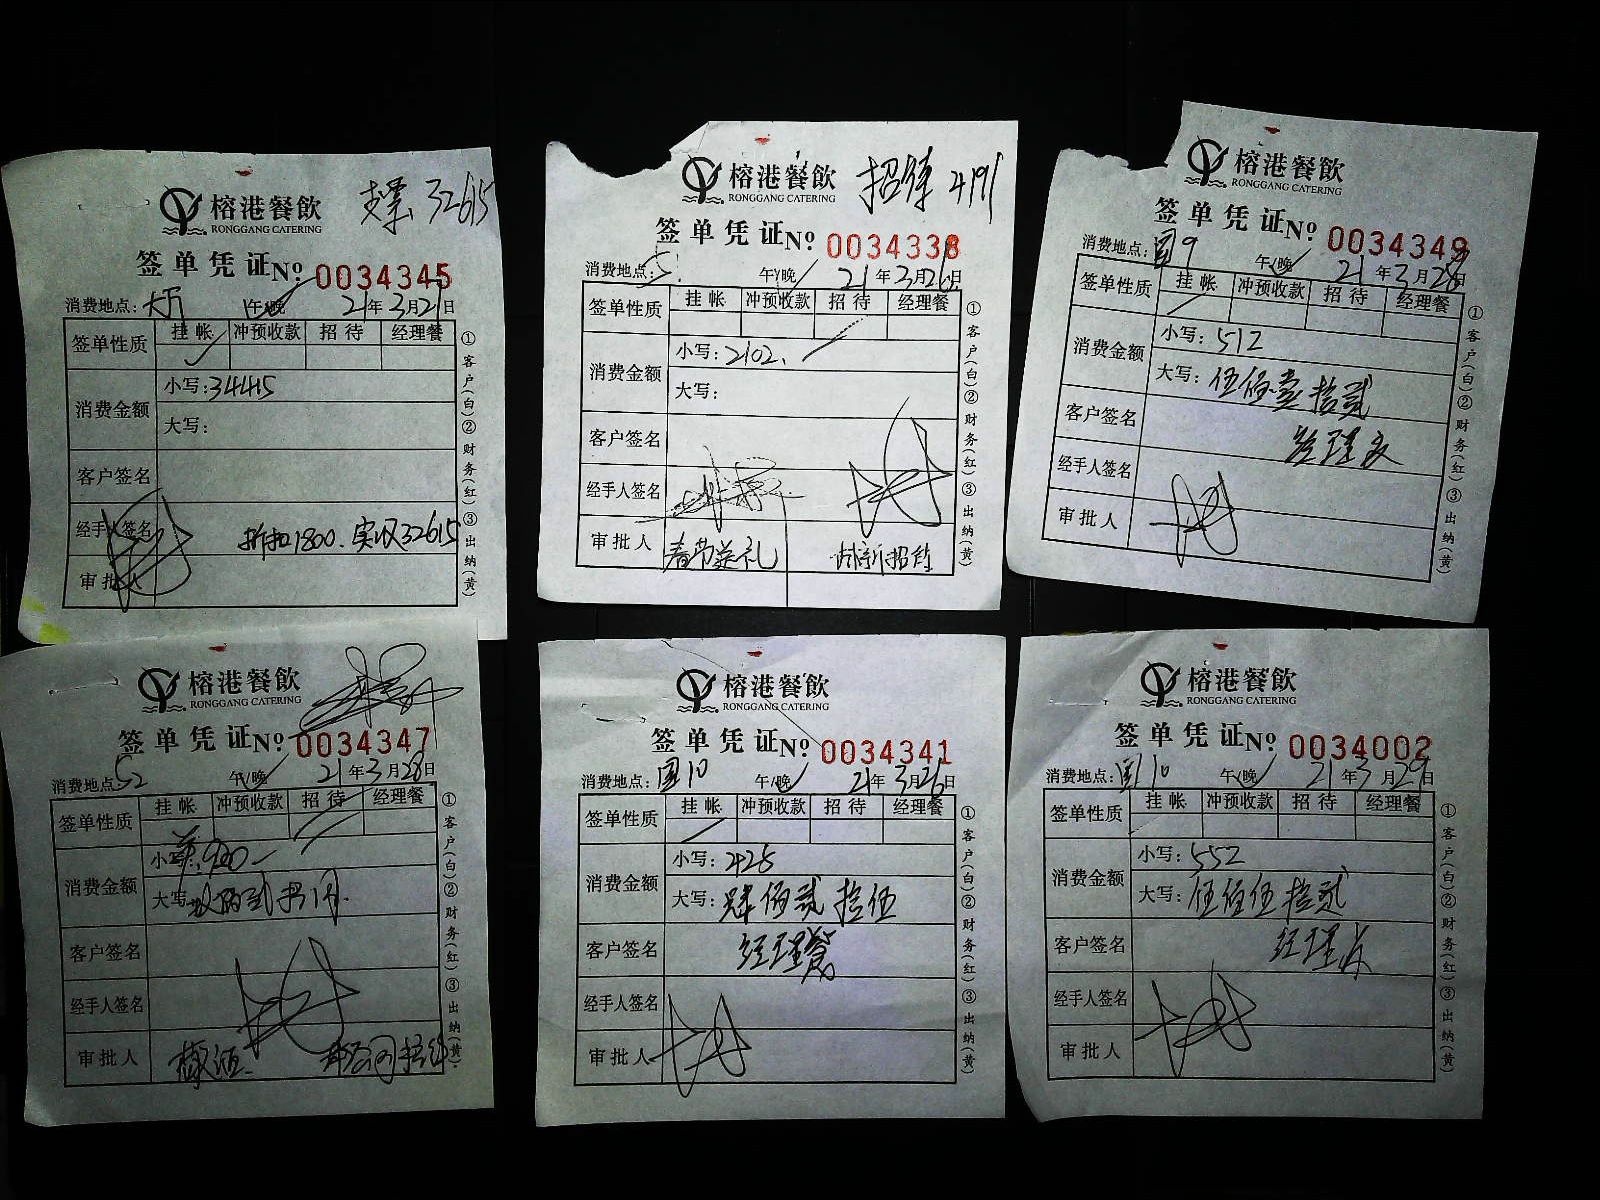 榕港餐飲
RONGGANG CATERING
支票 32615
签单凭证 No. 0034345
消费地点: 大厅 午/晚 21年3月21日
签单性质 挂帐 冲预收款 招待 经理餐
消费金额 小写: 34415
大写:
客户签名
经手人签名 折扣1800. 实收32615
审批人
①客户(白)②财务(红)③出纳(黄)
榕港餐飲
RONGGANG CATERING
招待 4191
签单凭证 No. 0034338
消费地点: 午/晚 21年3月26日
签单性质 挂帐 冲预收款 招待 经理餐
消费金额 小写: 2102.
大写:
客户签名
经手人签名
审批人 春节送礼
①客户(白)②财务(红)③出纳(黄)
榕港餐飲
RONGGANG CATERING
签单凭证 No. 0034349
消费地点: 国9 午/晚 21年3月28日
签单性质 挂帐 冲预收款 招待 经理餐
消费金额 小写: 512
大写: 伍佰壹拾贰
客户签名 经理餐
经手人签名
审批人
①客户(白)②财务(红)③出纳(黄)
榕港餐飲
RONGGANG CATERING
签单凭证 No. 0034347
消费地点: 52 午/晚 21年3月28日
签单性质 挂帐 冲预收款 招待 经理餐
消费金额 小写:
大写:
客户签名
经手人签名
审批人
①客户(白)②财务(红)③出纳(黄)
榕港餐飲
RONGGANG CATERING
签单凭证 No. 0034341
消费地点: 国10 午/晚 21年3月26日
签单性质 挂帐 冲预收款 招待 经理餐
消费金额 小写: 425
大写: 肆佰贰拾伍
客户签名 经理餐
经手人签名
审批人
①客户(白)②财务(红)③出纳(黄)
榕港餐飲
RONGGANG CATERING
签单凭证 No. 0034002
消费地点: 国10 午/晚 21年3月29日
签单性质 挂帐 冲预收款 招待 经理餐
消费金额 小写: 552
大写: 伍佰伍拾贰
客户签名 经理餐
经手人签名
审批人
①客户(白)②财务(红)③出纳(黄)